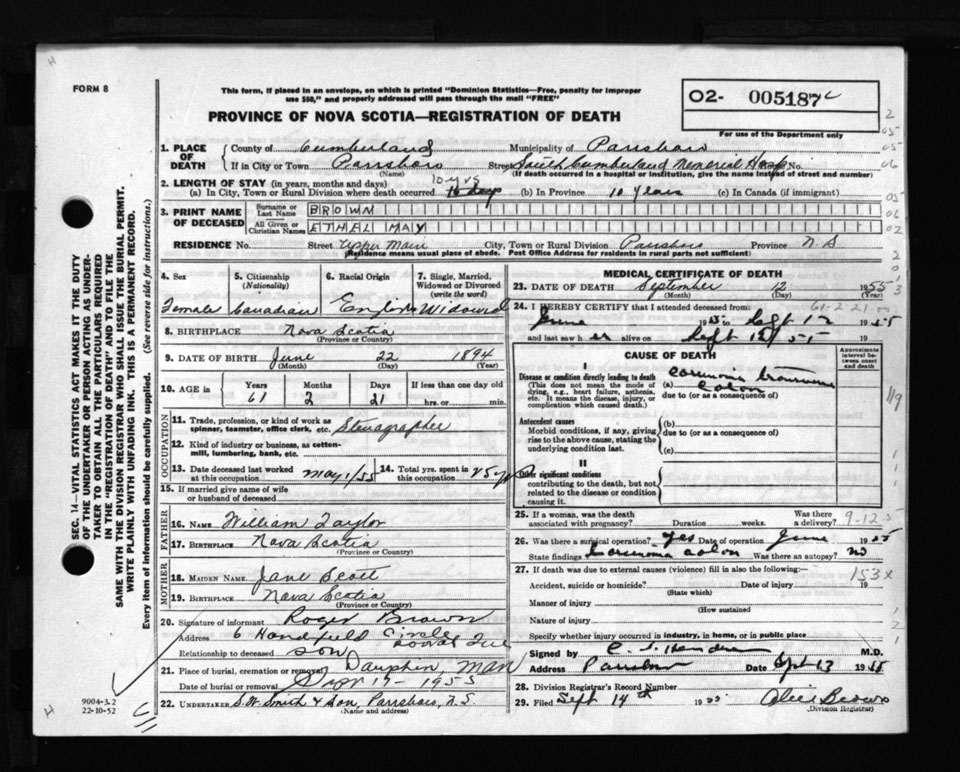 FORM 8
This form, if placed in an envelope, on which is printed "Dominion Statistics—Free, penalty for improper
use $50," and properly addressed will pass through the mail "FREE"
PROVINCE OF NOVA SCOTIA—REGISTRATION OF DEATH
02- 005187
For use of the Department only
1. PLACE OF DEATH
County of Cumberland Municipality of Parrsboro
If in City or Town Parrsboro Street South Cumberland Memorial Hosp No.
(Name) (If death occurred in a hospital or institution, give the name instead of street and number)
2. LENGTH OF STAY (in years, months and days)
10 yrs
(a) In City, Town or Rural Division where death occurred (b) In Province 10 Years (c) In Canada (if immigrant)
3. PRINT NAME OF DECEASED
Surname or Last Name BROWN
All Given or Christian Names ETHAL MAY
RESIDENCE No. Street Upper Main City, Town or Rural Division Parrsboro Province N.S
Residence means usual place of abode. Post Office Address for residents in rural parts not sufficient)
4. Sex 5. Citizenship (Nationality) 6. Racial Origin 7. Single, Married, Widowed or Divorced (write the word)
Female Canadian English Widowed
8. BIRTHPLACE Nova Scotia
(Province or Country)
9. DATE OF BIRTH June 22 1894
(Month) (Day) (Year)
10. AGE in Years Months Days If less than one day old
61 2 21 hrs. or min.
OCCUPATION
11. Trade, profession, or kind of work as
spinner, teamster, office clerk, etc. Stenographer
12. Kind of industry or business, as cotten-
mill, lumbering, bank, etc.
13. Date deceased last worked at this occupation May 1/55
14. Total yrs. spent in this occupation 25 yrs
15. If married give name of wife
or husband of deceased
FATHER
16. NAME William Taylor
17. BIRTHPLACE Nova Scotia
(Province or Country)
MOTHER
18. MAIDEN NAME Jane Scott
19. BIRTHPLACE Nova Scotia
(Province or Country)
20. Signature of informant Roger Brown
Address 6 Circle
Relationship to deceased son
Dauphin, MAN
21. Place of burial, cremation or removal
Date of burial or removal 1955
22. UNDERTAKER S.W. Smith & Son, Parrsboro, N.S.
(Name and address)
MEDICAL CERTIFICATE OF DEATH
23. DATE OF DEATH September 12 1955
(Month) (Day) (Year)
24. I HEREBY CERTIFY that I attended deceased from:
61-2-21
June 1955 to Sept 12 1955
and last saw her alive on Sept 12/55
CAUSE OF DEATH
Approximate interval between onset and death
I
Disease or condition directly leading to death
(This does not mean the mode of dying, e.g., heart failure, asthenia, etc. It means the disease, injury, or complication which caused death.)
(a) colon
due to (or as a consequence of)
Antecedent causes
Morbid conditions, if any, giving rise to the above cause, stating the underlying condition last.
(b)
due to (or as a consequence of)
(c)
II
Other significant conditions
contributing to the death, but not related to the disease or condition causing it.
25. If a woman, was the death
associated with pregnancy? Duration weeks. Was there a delivery?
9-12-55
26. Was there a surgical operation? yes Date of operation June 1955
State findings Carcinoma colon Was there an autopsy? no
27. If death was due to external causes (violence) fill in also the following:
153x
Accident, suicide or homicide? Date of injury 19
(State which)
Manner of injury
(How sustained
Nature of injury
Specify whether injury occurred in industry, in home, or in public place
Signed by M.D.
Address Parrsboro Date Sept 13 1955
28. Division Registrar's Record Number
29. Filed Sept 14th 1955 Brown
(Division Registrar)
SEC. 14—VITAL STATISTICS ACT MAKES IT THE DUTY
OF THE UNDERTAKER OR PERSON ACTING AS UNDER-
TAKER TO OBTAIN ALL THE PARTICULARS REQUIRED
IN THE "REGISTRATION OF DEATH" AND TO FILE THE
SAME WITH THE DIVISION REGISTRAR WHO SHALL ISSUE THE BURIAL PERMIT.
WRITE PLAINLY WITH UNFADING INK. THIS IS A PERMANENT RECORD.
Every item of information should be carefully supplied. (See reverse side for instructions.)
9004-3.2
22-10-52